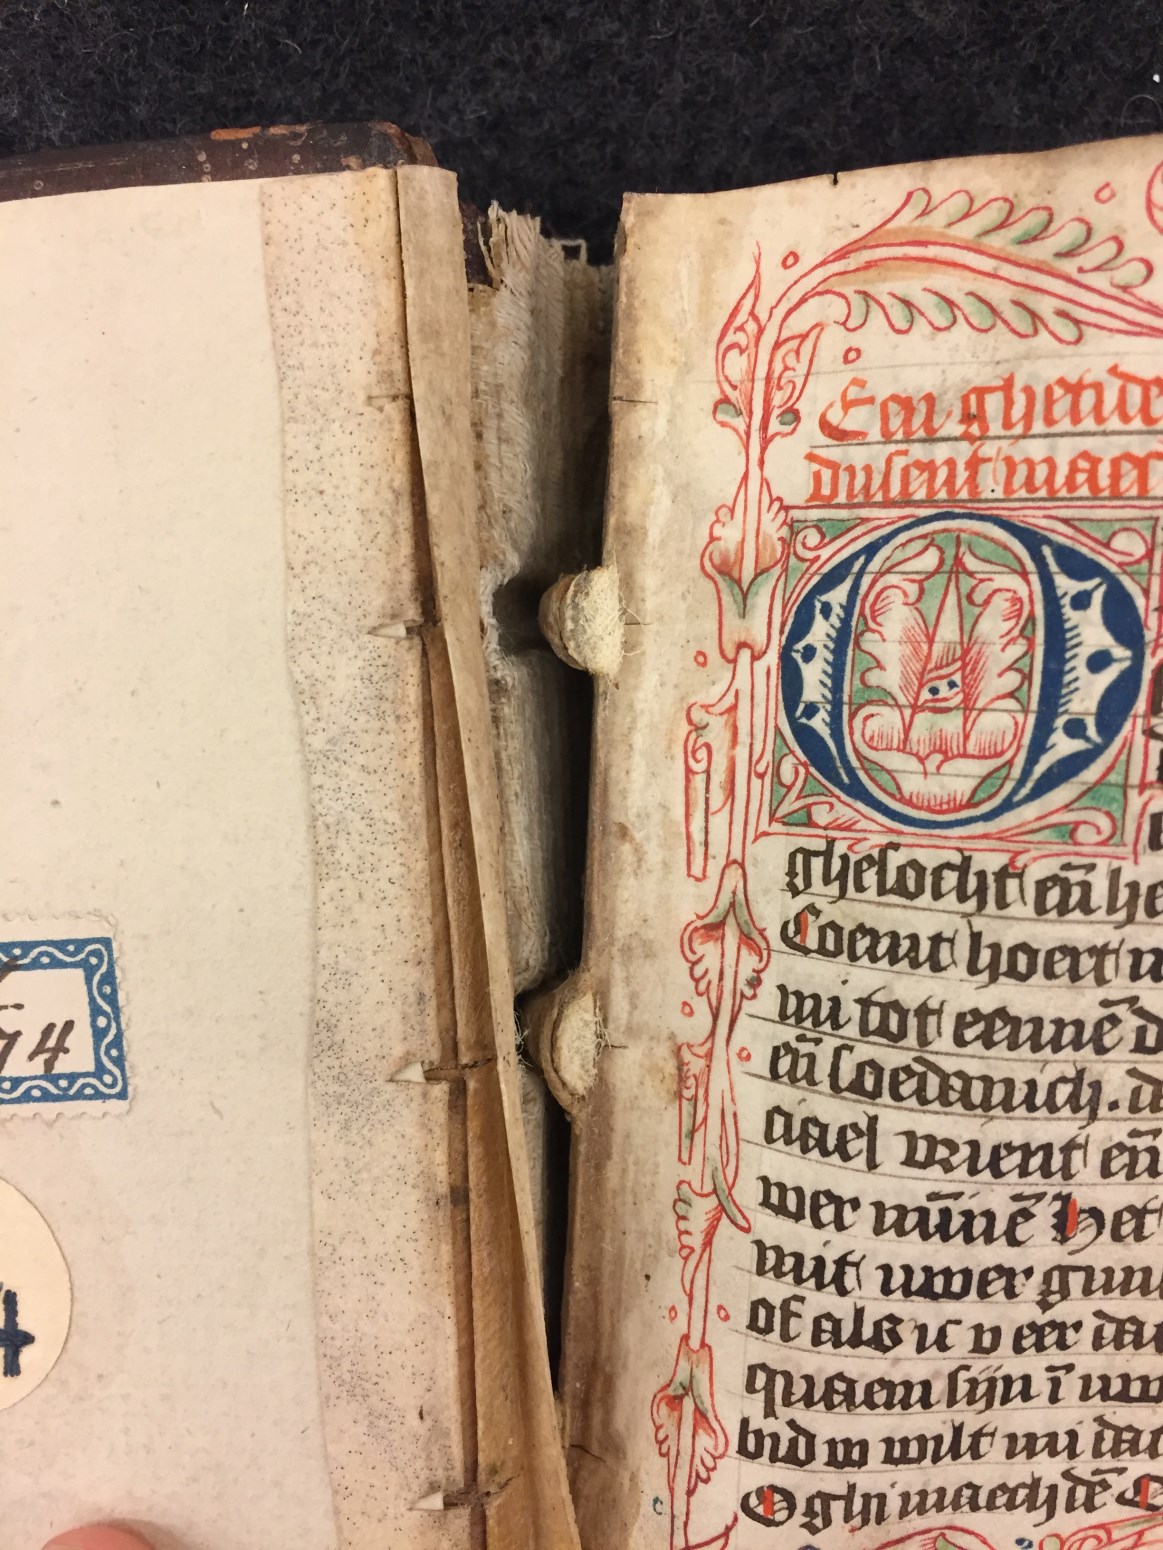 74
4
Een ghetide
dusent maec
O
ghesocht en̄ he
Coemt hoert
mi tot eennē d
en̄ soedanich. d
ael vrient en̄
wer mīnē Het
mit uwer gun
of als ic v eer dat
quaem sijn ī uw
bid w wilt mi dat
O ghi maechdē